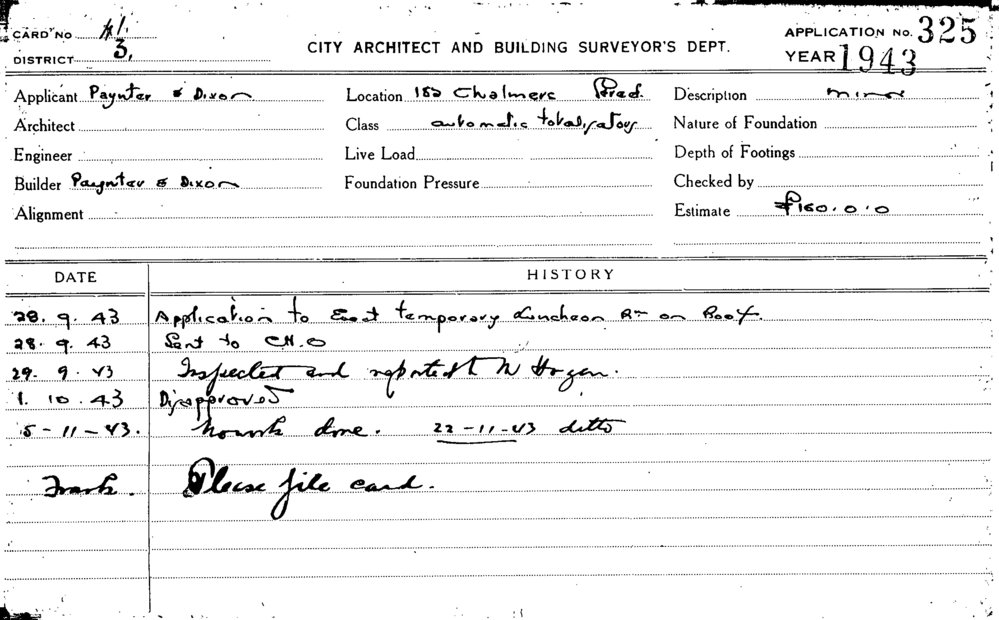 CARD No 1. APPLICATION No. 325
DISTRICT 3, CITY ARCHITECT AND BUILDING SURVEYOR'S DEPT. YEAR 1943
Applicant Paynter & Dixon Location 182 Chalmers Description minor
Architect Class automatic totalisators Nature of Foundation
Engineer Live Load Depth of Footings
Builder Paynter & Dixon Foundation Pressure Checked by
Alignment Estimate £160.0.0
DATE HISTORY
28. 9. 43 Application to Erect temporary Luncheon Rm on Roof.
28. 9. 43 Sent to C.H.O
29. 9. 43 Inspected and reported W Hogan.
1. 10. 43 Disapproved
5-11-43. No work done. 22-11-43 ditto
Frank. Please file card.